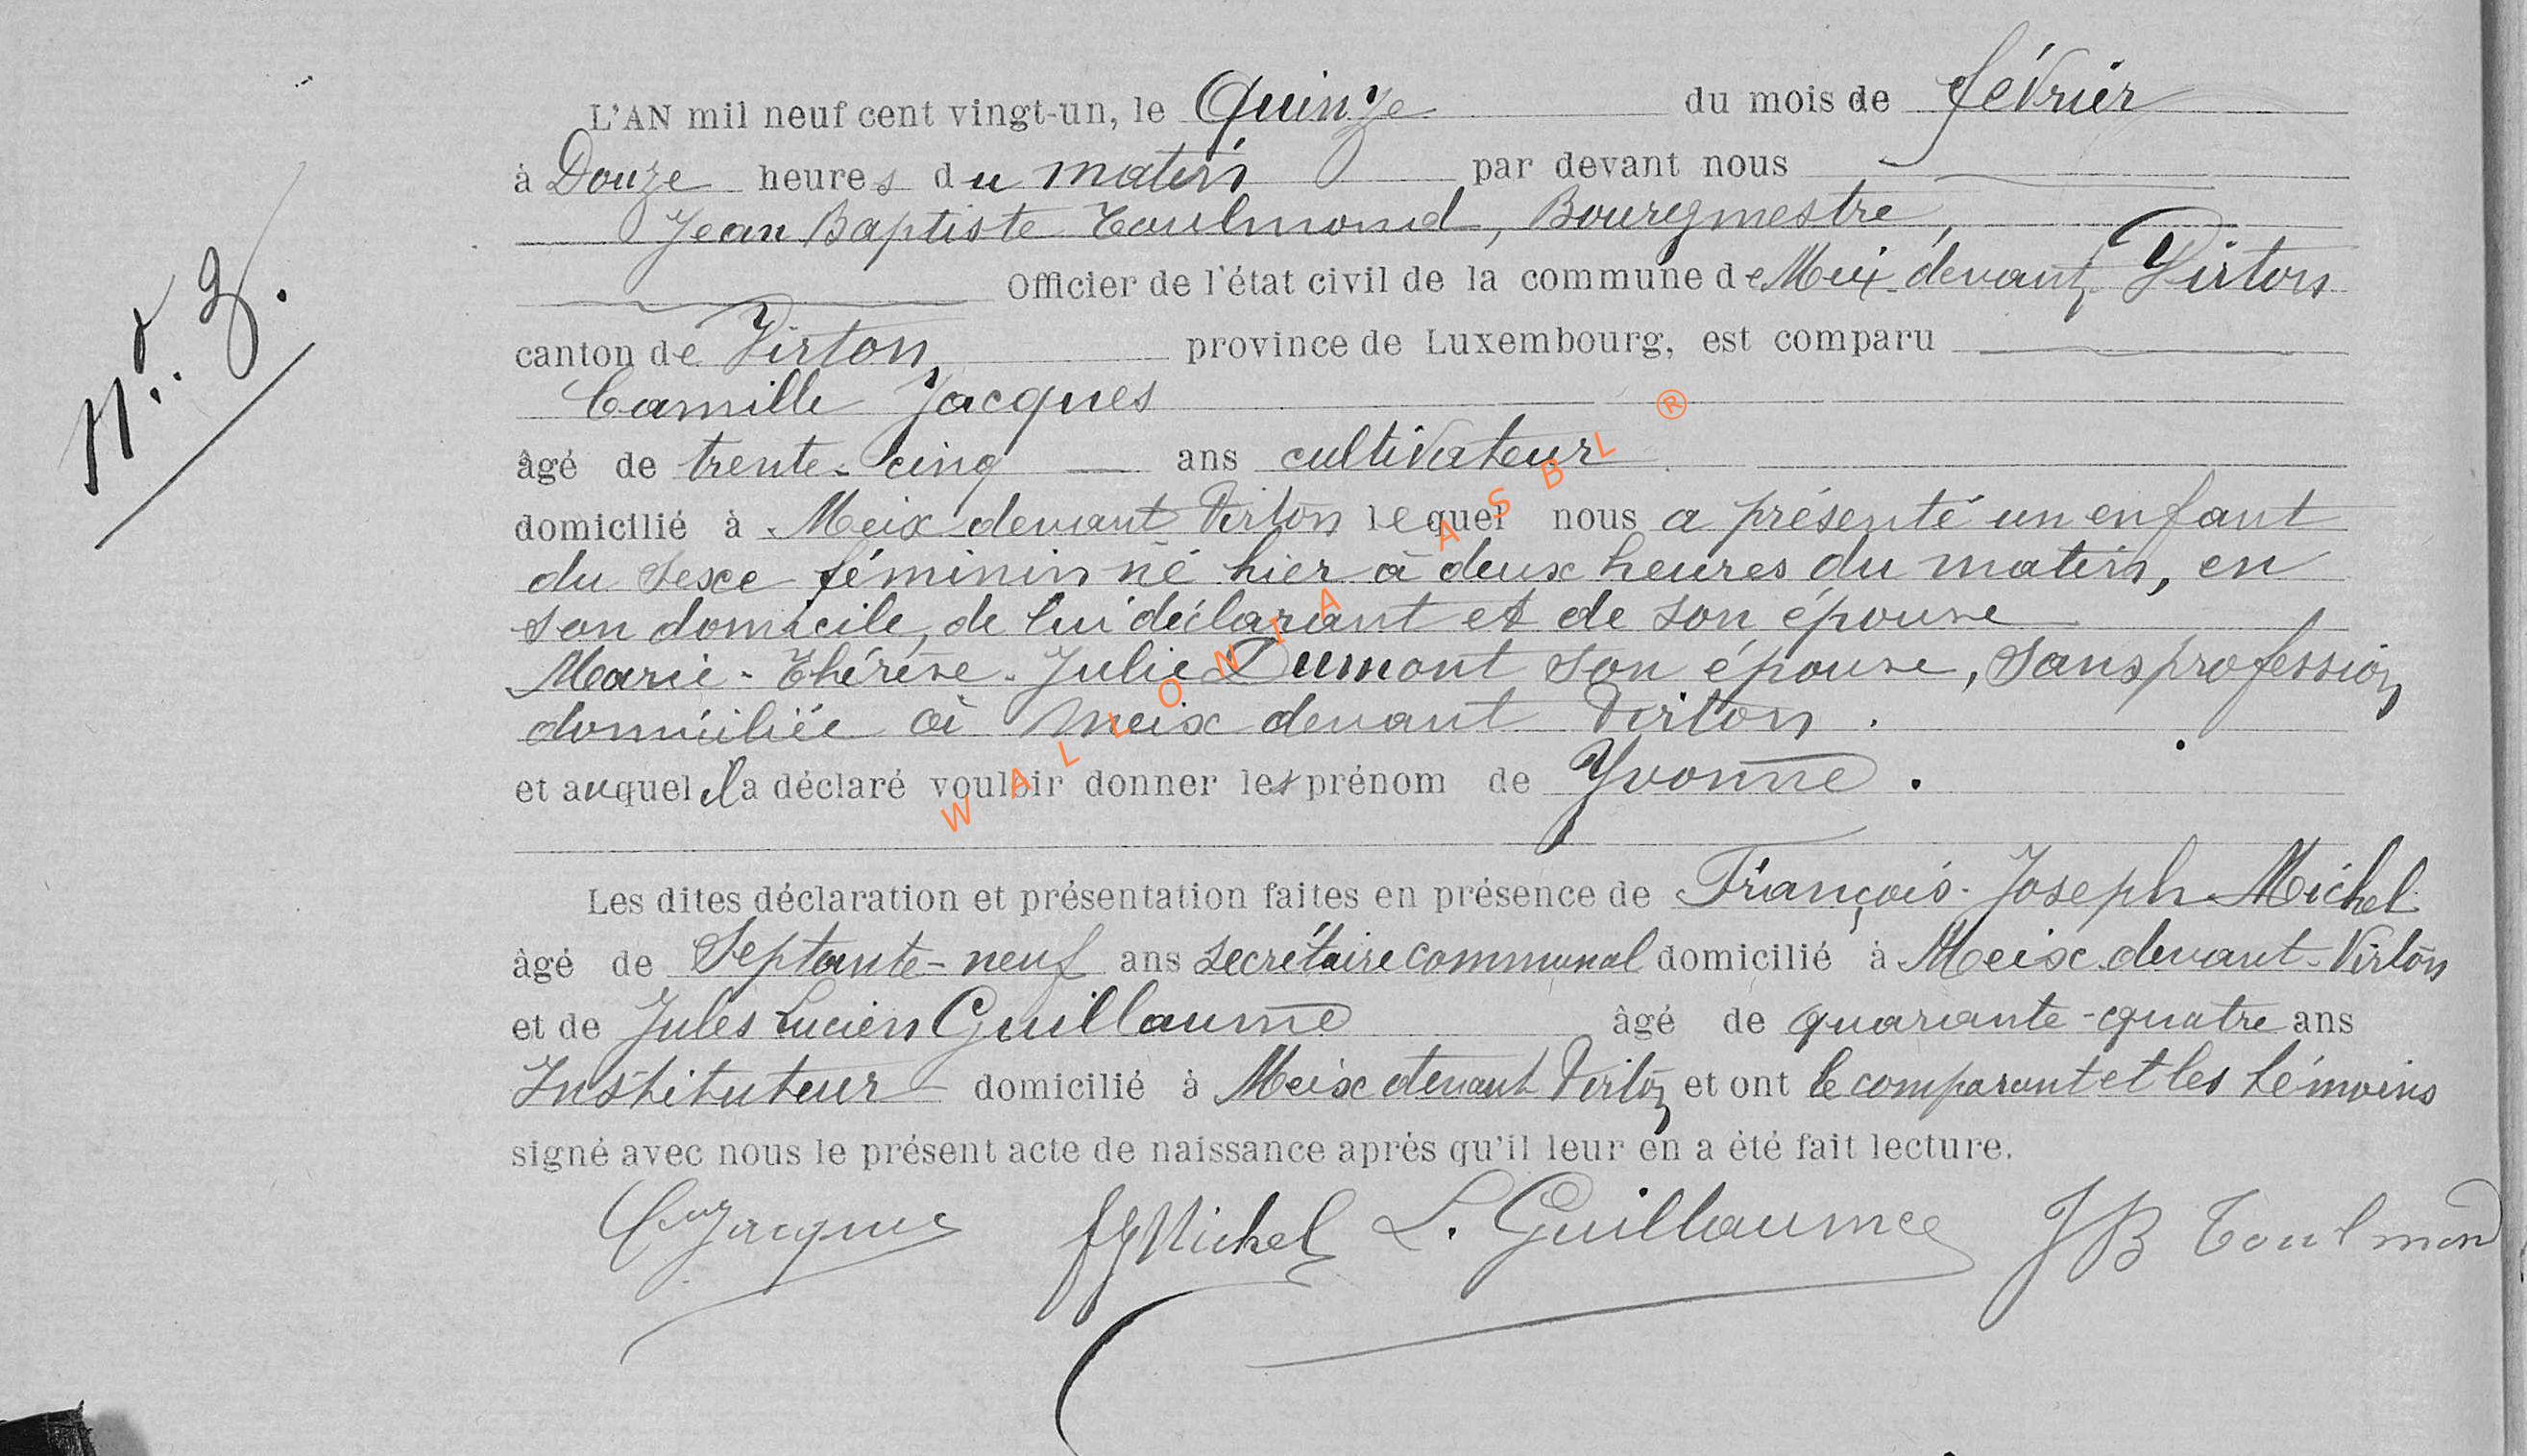 L'AN mil neuf cent vingt-un, le Quinze du mois de février
à Douze heures du matin par devant nous
Jean Baptiste Toulmond, Bourgmestre,
Officier de l'état civil de la commune de Meix-devant-Virton
canton de Virton, province de Luxembourg, est comparu
Camille Jacques
âgé de trente-cinq ans cultivateur
domicilié à Meix devant Virton lequel nous a présenté un enfant
du sexe féminin né hier à deux heures du matin, en
son domicile, de lui déclarant et de son épouse
Marie-Thérèse-Julie Dumont son épouse, sans profession
domiciliée à Meix devant Virton.
et auquel il a déclaré vouloir donner les prénom de Yvonne.
Les dites déclaration et présentation faites en présence de François-Joseph Michel
âgé de Septante-neuf ans secrétaire communal domicilié à Meix devant-Virton
et de Jules Lucien Guillaume âgé de quarante-quatre ans
Instituteur domicilié à Meix devant Virton et ont le comparant et les témoins
signé avec nous le présent acte de naissance après qu'il leur en a été fait lecture.
Jacques FJ Michel L. Guillaume JB Toulmond
WALLONIA ASBL ®